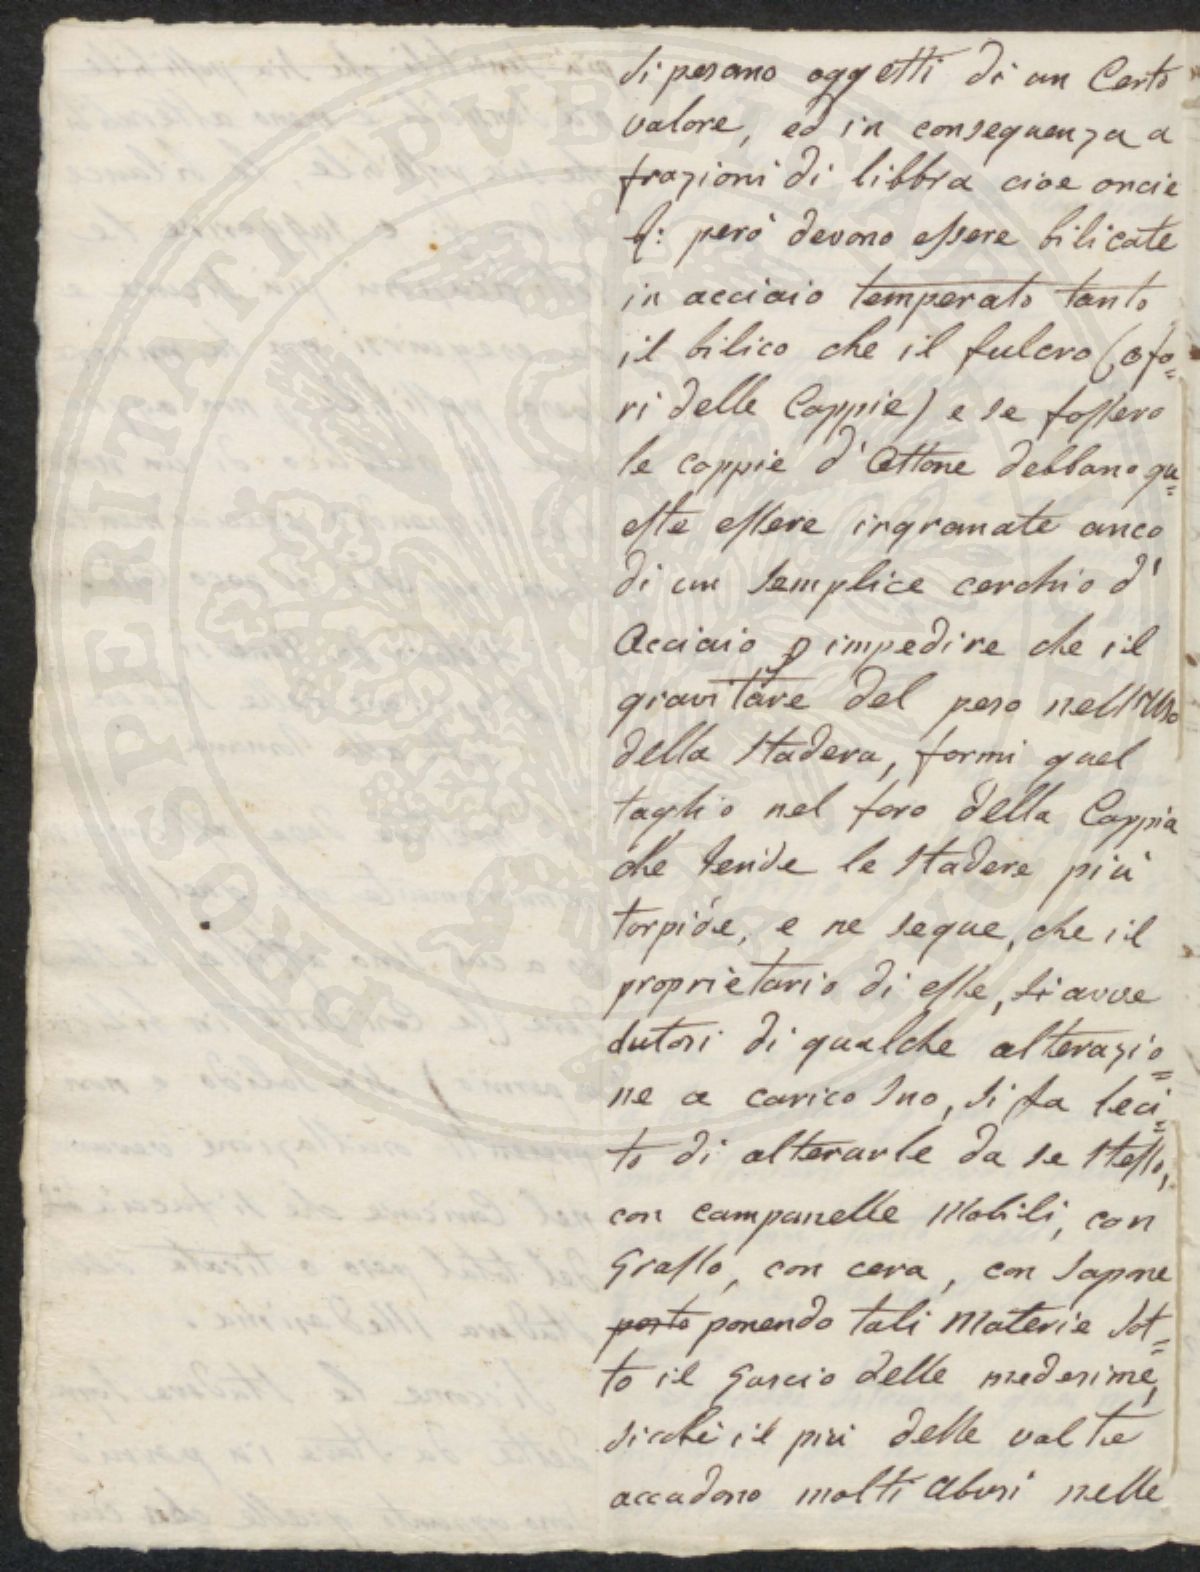 si pesano oggetti di un Certo
valore, ed in conseguenza a
frazioni di libbra cioe oncie
però devono essere bilicate
in acciaio temperato tanto
il bilico che il fulcro (o fo=
ri delle Coppie) e se fossero
le coppie d'Ottone debbano qu=
este essere ingranate anco
di un semplice cerchio d'
Acciaio p impedire che il
gravitare del peso nell'uso
della stadera, formi quel
taglio nel foro della Coppia
che rende le stadere più
torpide, e ne segue, che il
proprietario di esse, si avve
dutosi di qualche alterazio=
ne a carico suo, si fa leci=
to di alterarle da se stesso,
con campanelle Mobili, con
Grasso, con cera, con sapone
posto ponendo tali Materie sot=
to il Guscio delle medesime,
sicchè il più delle volte
accadono molti Abusi nelle
PROSPERITATI PUBLICAE